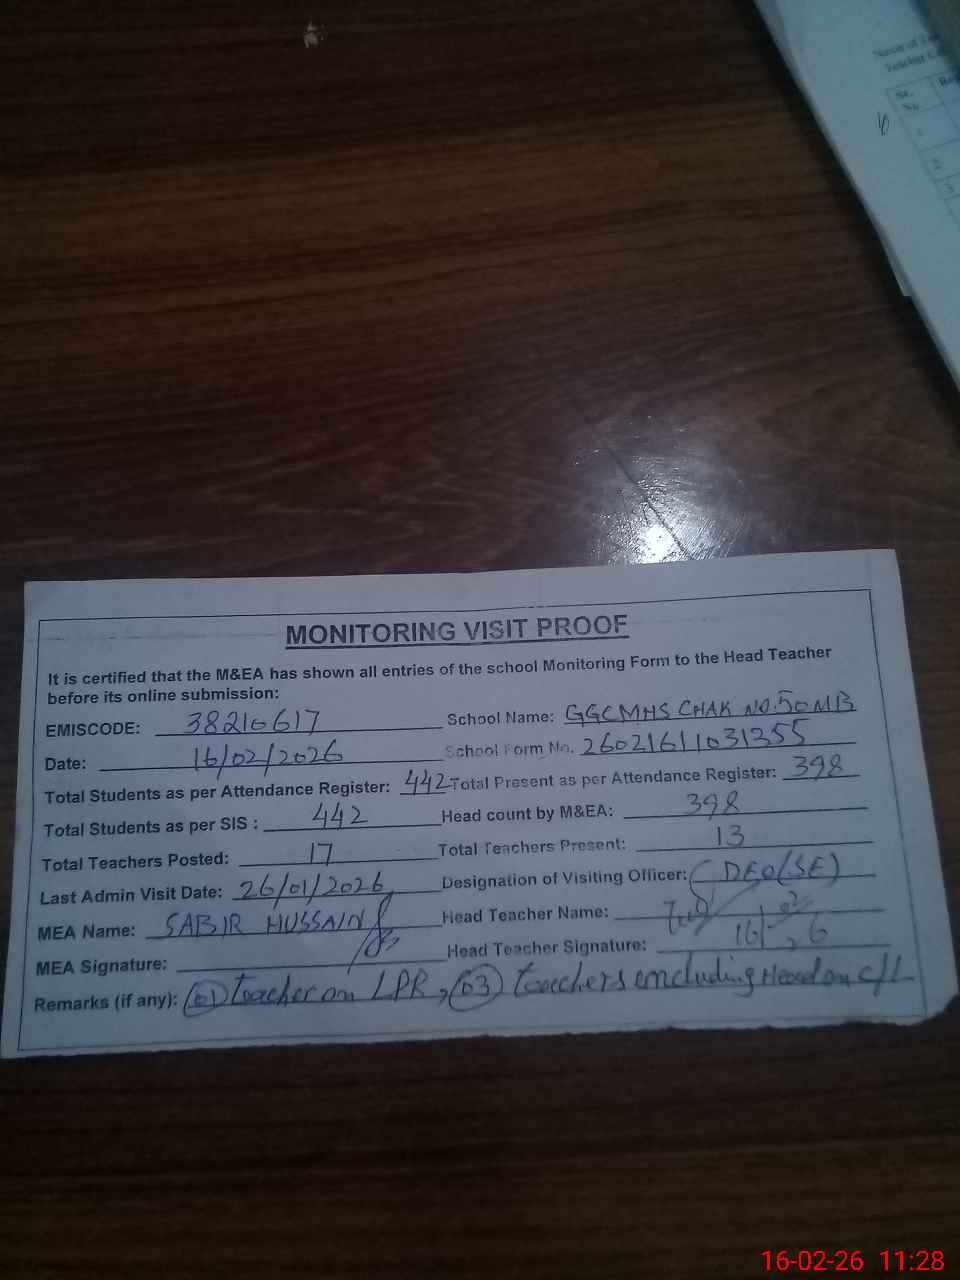 Name of
Teacher
Sr.
No
MONITORING VISIT PROOF
It is certified that the M&EA has shown all entries of the school Monitoring Form to the Head Teacher
before its online submission:
EMISCODE: 38210617 School Name: GGCMHS CHAK NO.50MB
Date: 16/02/2026 School Form No. 26021611031355
Total Students as per Attendance Register: 442 Total Present as per Attendance Register: 398
Total Students as per SIS : 442 Head count by M&EA: 398
Total Teachers Posted: 17 Total Teachers Present: 13
Last Admin Visit Date: 26/01/2026 Designation of Visiting Officer: DEO(SE)
MEA Name: SABIR HUSSAIN Head Teacher Name:
MEA Signature: Head Teacher Signature:
Remarks (if any): (01) teacher on LPR, (03) teachers including Head on c/L
16-02-26 11:28